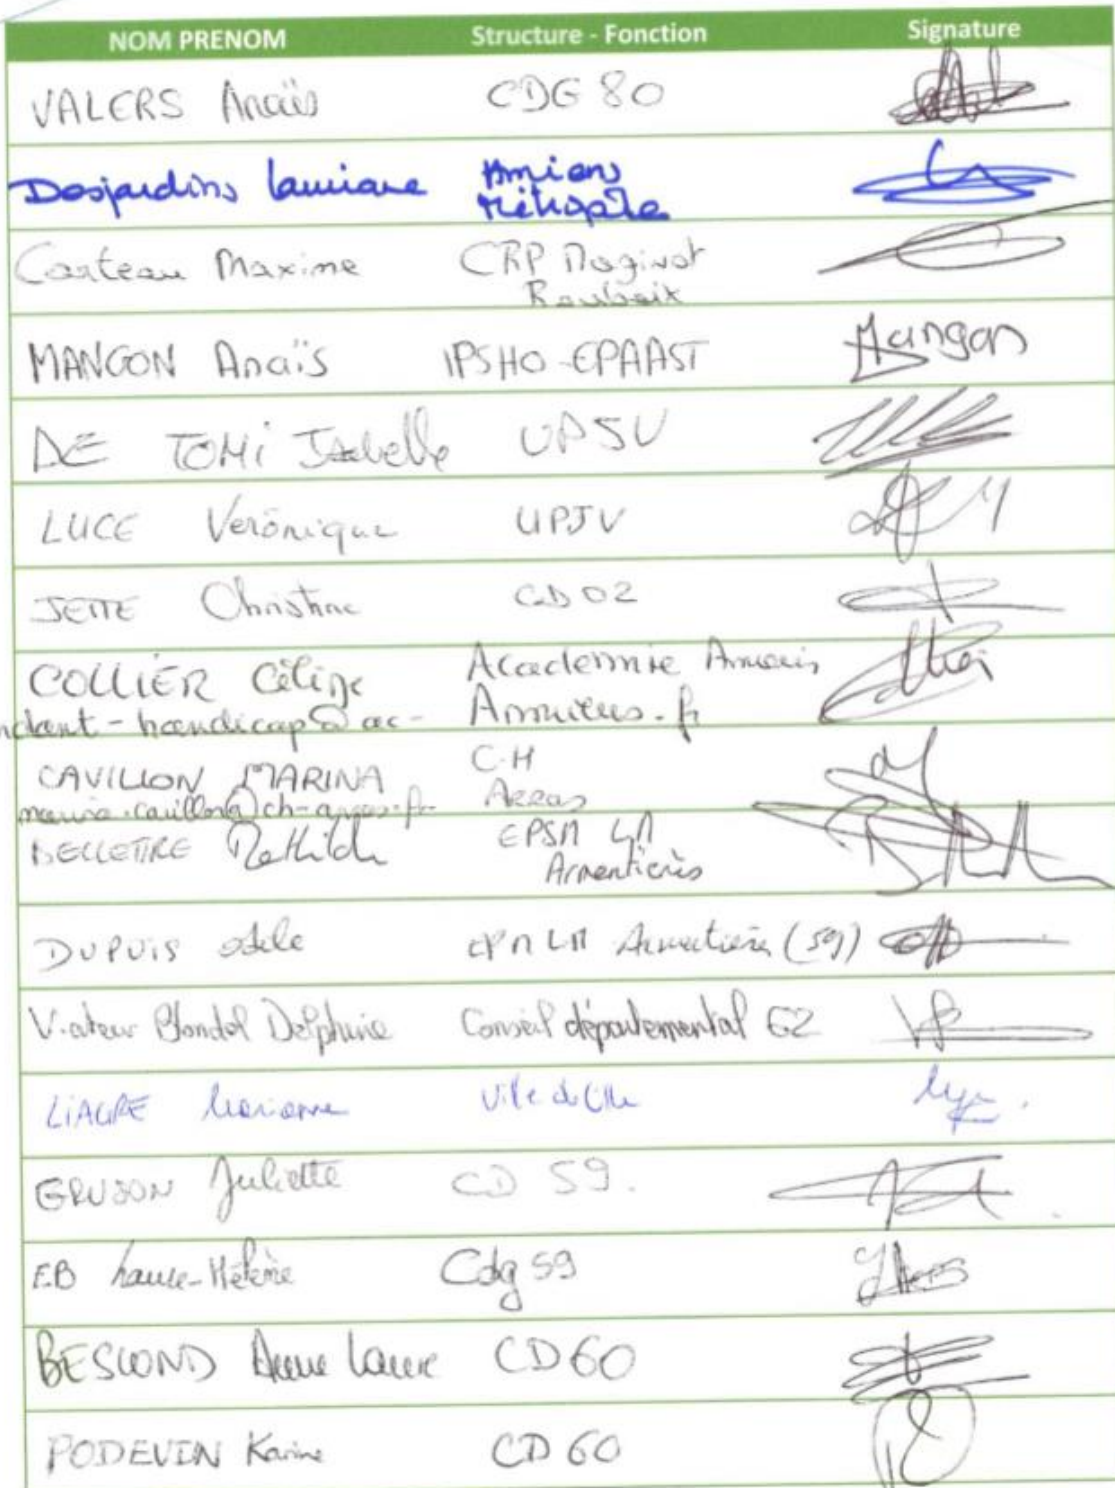 NOM PRENOM Structure - Fonction Signature
VALERS Anaïs CDG 80
Desjardins Amiens
Métropole
Carteau Maxime CRP Maginot
Roubaix
MANGON Anaïs IPSHO-EPAAST Mangon
DE TOMi Isabelle UPJV
LUCE Véronique UPJV
JETTE Christine CD 02
COLLIER Céline Academie Amiens
ndant-handicap@ac- Amiens.fr
CAVILLON MARINA C.H
marina.cavillon@ch-arras.fr Arras
DELLETTRE Mathilde EPSM LM
Armentières
DUPUIS Odile LM Armentières (59)
Blondel Delphine Conseil départemental 62
LiAGRE Marianne Ville de Lille
GRUSON Juliette CD 59.
EB Marie-Hélène Cdg 59
BESCOND Anne Laure CD 60
PODEVIN Karine CD 60